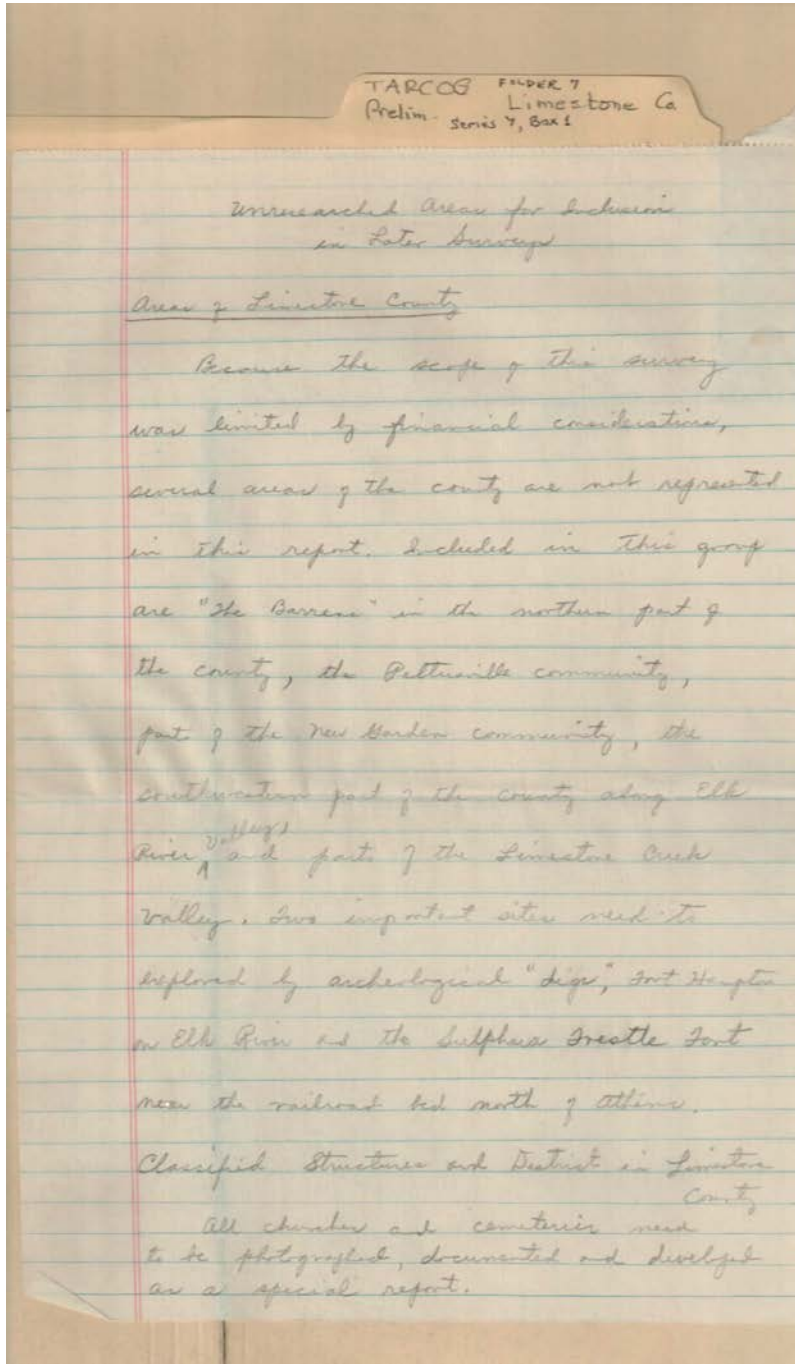 TARCOG FOLDER 7
Prelim. Limestone Co
Series 7, Box 1
Unresearched Areas for Inclusion
in Later Surveys
Areas of Limestone County
Because the scope of this survey
was limited by financial considerations,
several areas of the county are not represented
in this report. Included in this group
are "The Barrens" in the northern part of
the county, the Pettusville community,
part of the New Garden community, the
southwestern part of the county along Elk
River, Valleys and parts of the Limestone Creek
Valley. Two important sites need to
explored by archeological "digs", Fort Hampton
on Elk River and the Sulphur Trestle Fort
near the railroad bed north of Athens.
Classified Structures and District in Limestone
County
All churches and cemeteries need
to be photographed, documented and developed
as a special report.